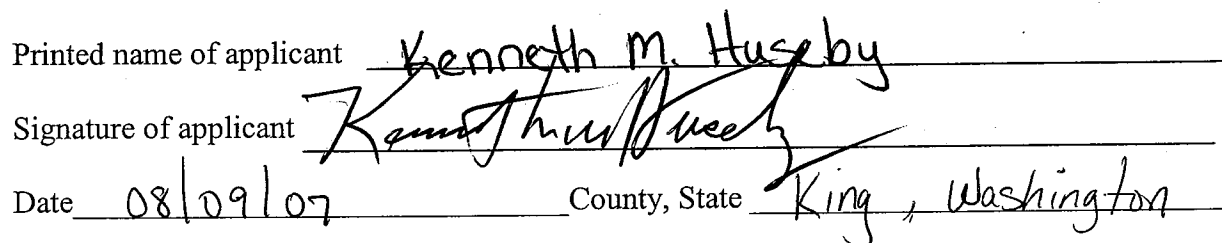 Printed name of applicant Kenneth M. Huseby
Signature of applicant Kenneth M Huseby
Date 08/09/07 County, State King, Washington